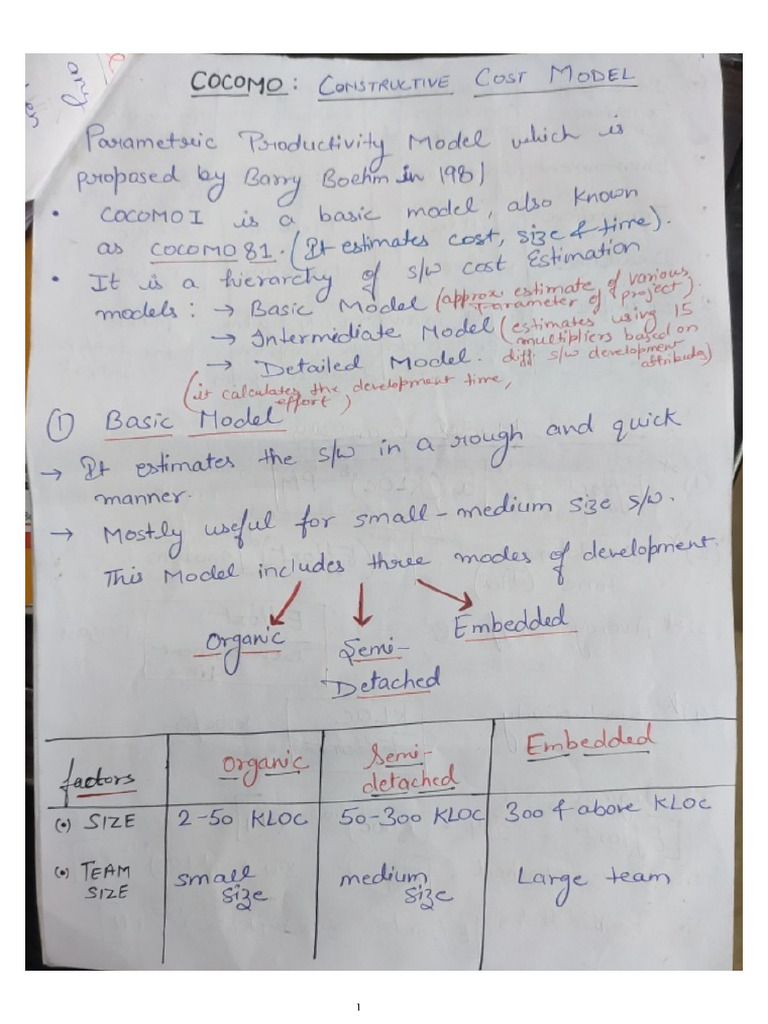 any
COCOMO : CONSTRUCTIVE COST MODEL
Parametric Productivity Model which is
proposed by Barry Boehm in 1981
• COCOMO I is a basic model, also known
as COCOMO 81. (It estimates cost, size & time).
• It is a hierarchy of s/w cost Estimation
models : → Basic Model (approx estimate of various
Parameter of project).
→ Intermediate Model (estimates using 15
multipliers based on
diff s/w development
attributes)
→ Detailed Model.
(it calculates the development time,
effort)
① Basic Model
→ It estimates the s/w in a rough and quick
manner.
→ Mostly useful for small-medium size s/w.
This Model includes three modes of development.
Organic
Semi-
Detached
Embedded
factors Organic Semi-
detached Embedded
(•) SIZE 2-50 KLOC 50-300 KLOC 300 & above KLOC
(•) TEAM
SIZE small
size medium
size Large team
1